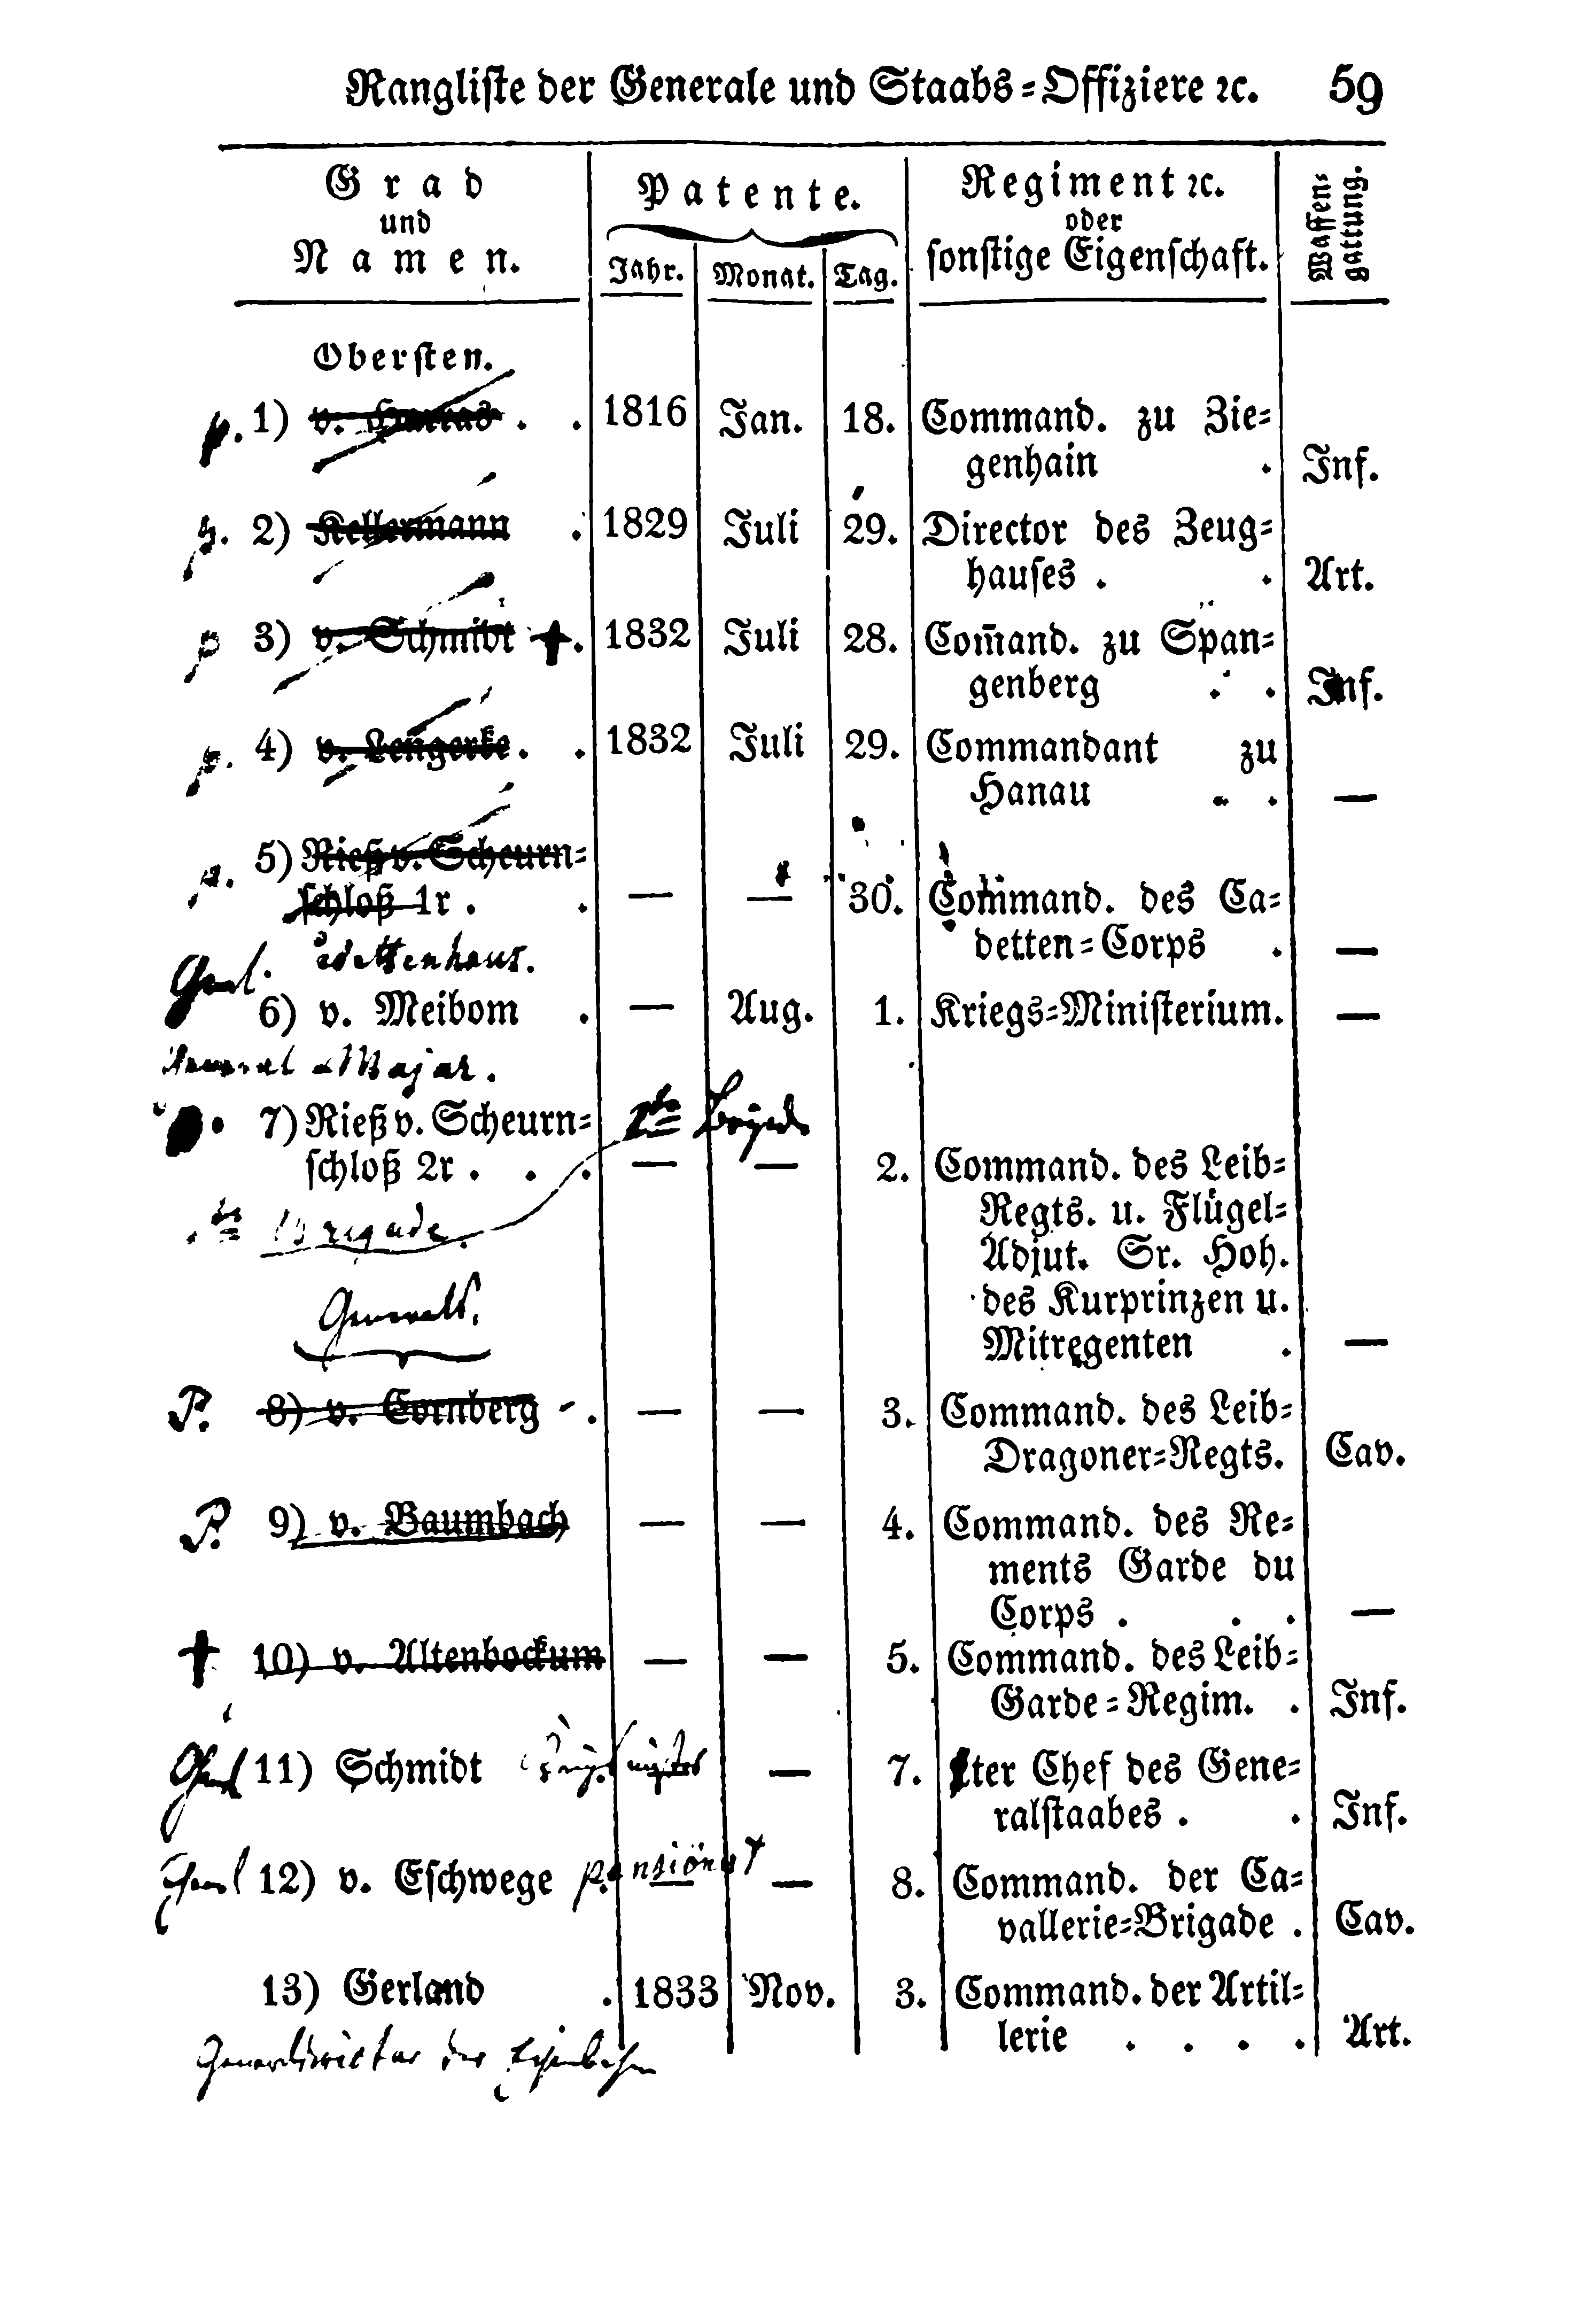 Rangliste der Generale und Staabs=Offiziere ꝛc. 59
Grad
und
Namen.
Patente.
Jahr. Monat. Tag.
Regiment ꝛc.
oder
sonstige Eigenschaft.
Waffen-
gattung.
Obersten.
p. 1) v. . . 1816 Jan. 18. Command. zu Zie=
genhain . Inf.
p. 2) Kellermann . 1829 Juli 29. Director des Zeug=
hauses . . Art.
p 3) v. Schmidt †. 1832 Juli 28. Com̄and. zu Span=
genberg . . Inf.
p. 4) v. Lengerke . . 1832 Juli 29. Commandant zu
Hanau . . —
p. 5) Rieß v. Scheurn=
schloß 1r . . — — 30. Command. des Ca=
detten=Corps . —
6) v. Meibom . — Aug. 1. Kriegs=Ministerium. —
General Major.
7) Rieß v. Scheurn=
schloß 2r . . . — — 2. Command. des Leib=
Regts. u. Flügel=
Adjut. Sr. Hoh.
des Kurprinzen u.
Mitregenten . —
Brigade.
P. 8) v. Cornberg - . — — 3. Command. des Leib=
Dragoner=Regts. Cav.
P. 9) v. Baumbach — — 4. Command. des Re=
ments Garde du
Corps . . . —
† 10) v. Altenbockum — — 5. Command. des Leib=
Garde=Regim. . Inf.
11) Schmidt — 7. 1ter Chef des Gene=
ralstaabes . . Inf.
12) v. Eschwege pensionirt — — 8. Command. der Ca=
vallerie=Brigade . Cav.
13) Gerland . 1833 Nov. 3. Command. der Artil=
lerie . . . . Art.
Generaldirector der Eisenbahn